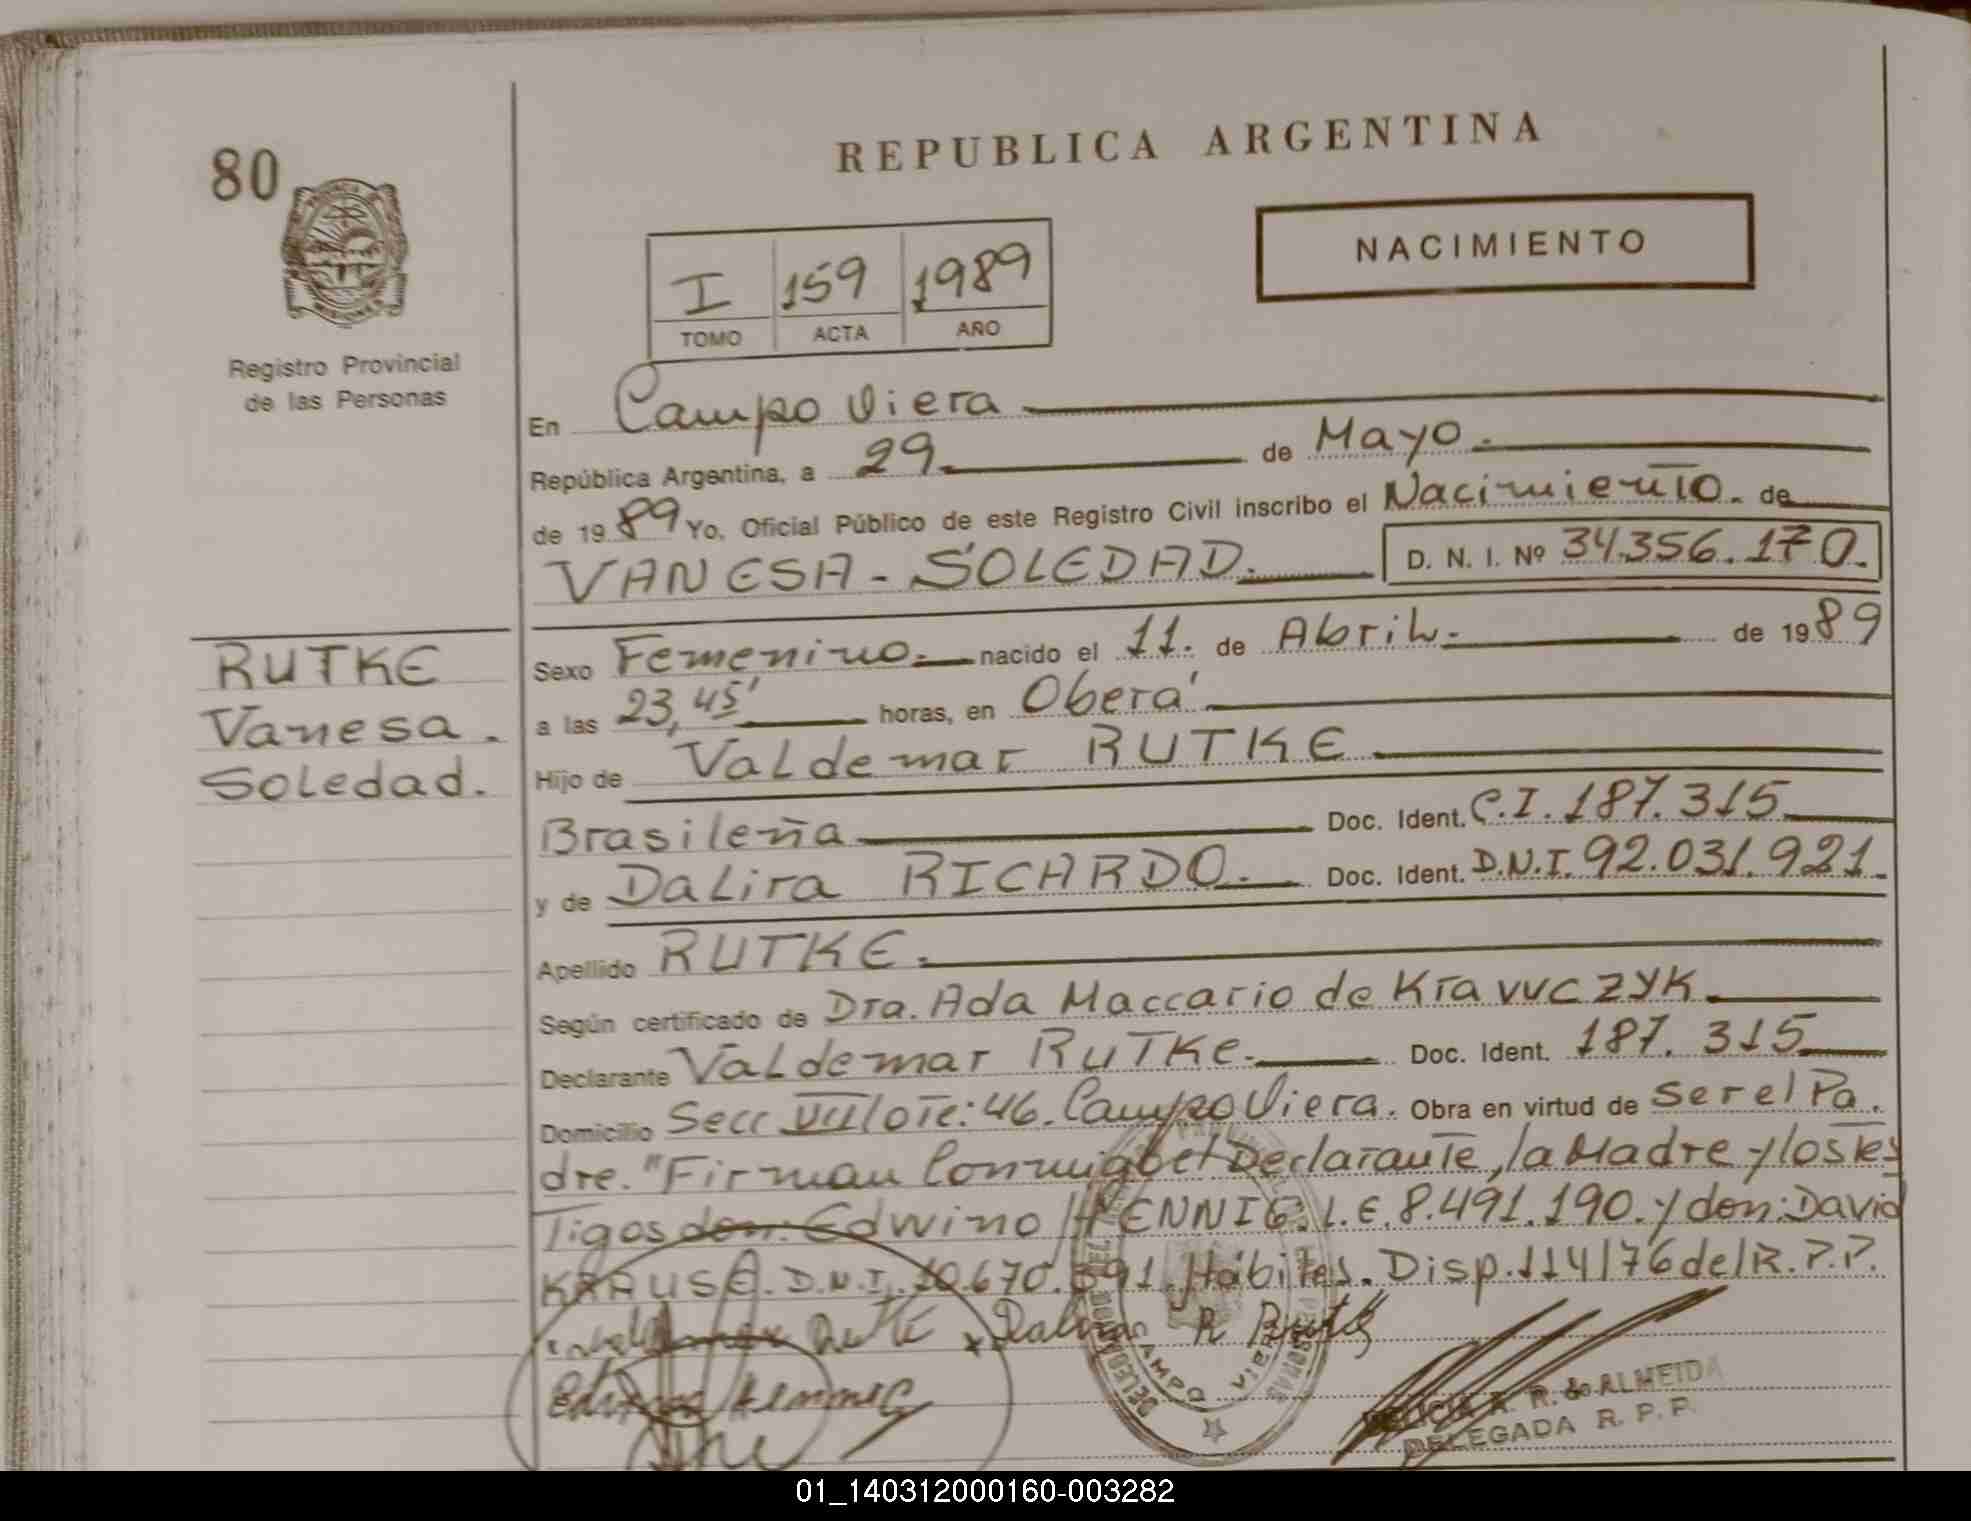 REPUBLICA ARGENTINA
80
NACIMIENTO
I 159 1989
TOMO ACTA AÑO
Registro Provincial
de las Personas
En Campo Viera
República Argentina, a 29. de Mayo.
de 1989 Yo, Oficial Público de este Registro Civil inscribo el Nacimiento. de
VANESA - SOLEDAD. D. N. I. Nº 34.356.170.
RUTKE
Vanesa.
Soledad.
Sexo Femenino. nacido el 11. de Abril. de 1989
a las 23,45' horas, en Oberá
Hijo de Valdemar RUTKE
Brasileña Doc. Ident. C.I. 187.315
y de Dalira RICARDO. Doc. Ident. D.N.I. 92.031.921.
Apellido RUTKE.
Según certificado de Dra. Ada Maccario de Kravvczyk
Declarante Valdemar RUTKe. Doc. Ident. 187.315
Domicilio Secc VII lote: 46. Campo Viera. Obra en virtud de ser el Pa.
dre. "Firman Conmigo el Declarante, la Madre y los tes
Tigos don: Edwino HENNIG. L.E. 8.491.190. y don: David
KRAUSE. D.N.I. 10.670.591. Hábiles. Disp. 114/76 del R.P.P.
DELICIA A. R. de ALMEIDA
DELEGADA R. P. P.
CAMPO VIERA
01_140312000160-003282